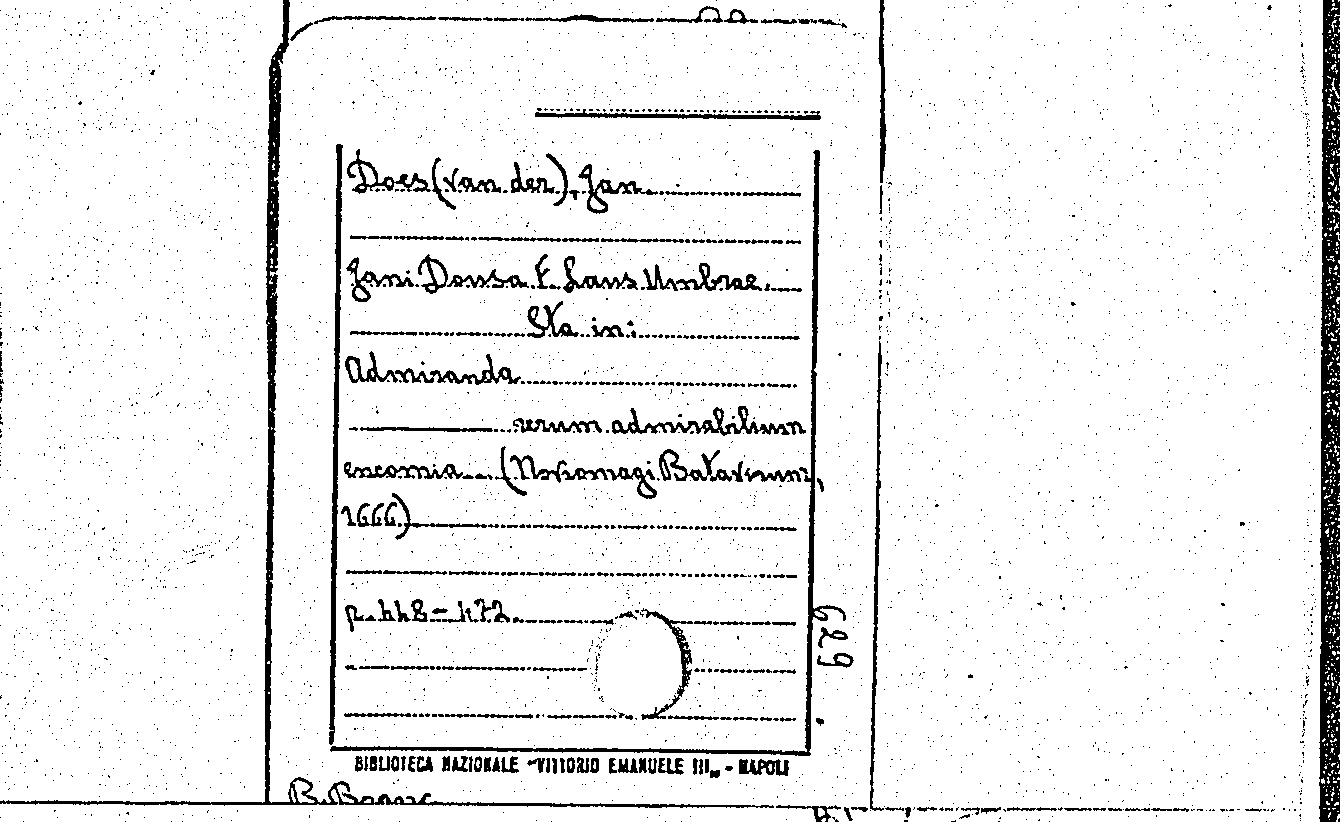 Does (van der), Jan.
Jani Dousa F. Laus Umbrae.
Sta in:
Admiranda
rerum admirabilium
encomia (Noviomagi Batavorum,
1666)
p. 448-472.
629
BIBLIOTECA NAZIONALE "VITTORIO EMANUELE III„ - NAPOLI